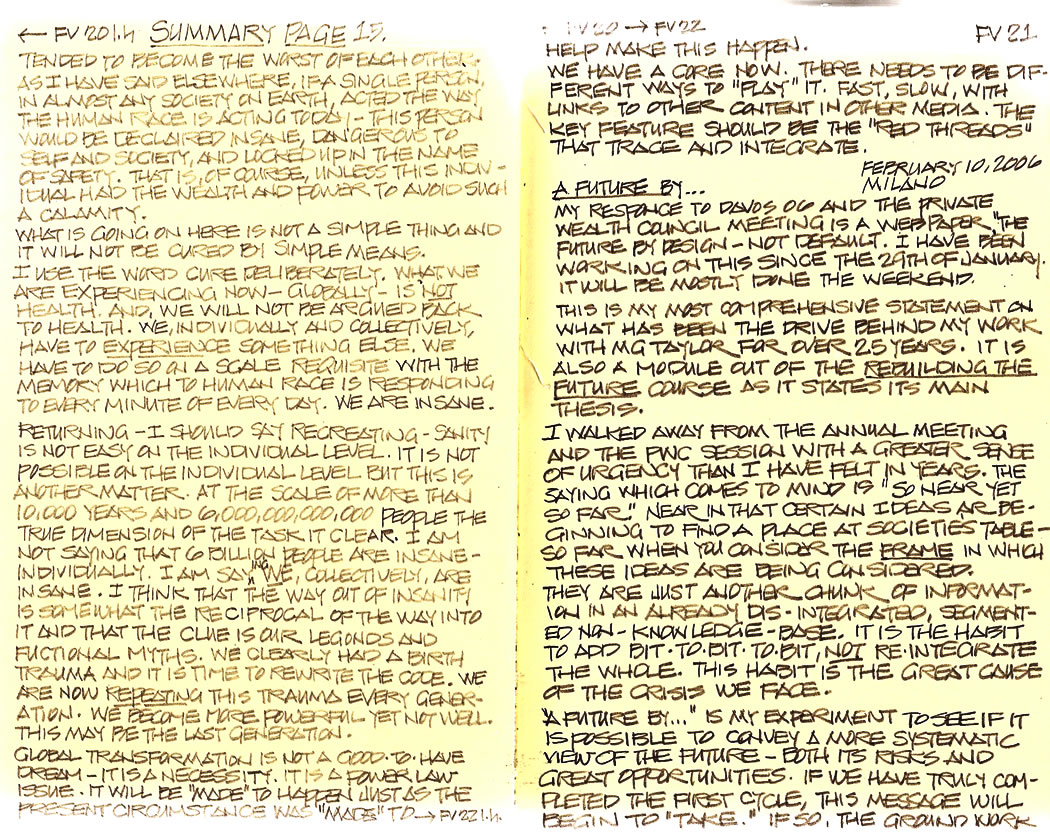 ← FV 20 l.h SUMMARY PAGE 15.
TENDED TO BECOME THE WORST OF EACH OTHER.
AS I HAVE SAID ELSEWHERE, IF A SINGLE PERSON,
IN ALMOST ANY SOCIETY ON EARTH, ACTED THE WAY
THE HUMAN RACE IS ACTING TODAY - THIS PERSON
WOULD BE DECLAIRED INSANE, DANGEROUS TO
SELF AND SOCIETY, AND LOCKED UP IN THE NAME
OF SAFETY. THAT IS, OF COURSE, UNLESS THIS INDIV-
IDUAL HAD THE WEALTH AND POWER TO AVOID SUCH
A CALAMITY.
WHAT IS GOING ON HERE IS NOT A SIMPLE THING AND
IT WILL NOT BE CURED BY SIMPLE MEANS.
I USE THE WORD CURE DELIBERATELY. WHAT WE
ARE EXPERIENCING NOW - GLOBALLY - IS NOT
HEALTH. AND, WE WILL NOT BE ARGUED BACK
TO HEALTH. WE, INDIVIDUALLY AND COLLECTIVELY,
HAVE TO EXPERIENCE SOMETHING ELSE. WE
HAVE TO DO SO ON A SCALE REQUISITE WITH THE
MEMORY WHICH TO HUMAN RACE IS RESPONDING
TO EVERY MINUTE OF EVERY DAY. WE ARE INSANE.
RETURNING - I SHOULD SAY RECREATING - SANITY
IS NOT EASY ON THE INDIVIDUAL LEVEL. IT IS NOT
POSSIBLE ON THE INDIVIDUAL LEVEL BUT THIS IS
ANOTHER MATTER. AT THE SCALE OF MORE THAN
10,000 YEARS AND 6,000,000,000,000 PEOPLE THE
TRUE DIMENSION OF THE TASK IT CLEAR. I AM
NOT SAYING THAT 6 BILLION PEOPLE ARE INSANE -
INDIVIDUALLY. I AM SAYING WE, COLLECTIVELY, ARE
INSANE. I THINK THAT THE WAY OUT OF INSANITY
IS SOMEWHAT THE RECIPROCAL OF THE WAY INTO
IT AND THAT THE CLUE IS OUR LEGONDS AND
FUCTIONAL MYTHS. WE CLEARLY HAD A BIRTH
TRAUMA AND IT IS TIME TO REWRITE THE CODE. WE
ARE NOW REPEATING THIS TRAUMA EVERY GENER-
ATION. WE BECOME MORE POWERFUL YET NOT WELL.
THIS MAY BE THE LAST GENERATION.
GLOBAL TRANSFORMATION IS NOT A GOOD·TO·HAVE
DREAM - IT IS A NECESSITY. IT IS A POWER LAW
ISSUE. IT WILL BE "MADE" TO HAPPEN JUST AS THE
PRESENT CIRCUMSTANCE WAS "MADE" TO → FV 22 l.h.
FV 20 → FV 22 FV 21
HELP MAKE THIS HAPPEN.
WE HAVE A CORE NOW. THERE NEEDS TO BE DIF-
FERENT WAYS TO "PLAY" IT. FAST, SLOW, WITH
LINKS TO OTHER CONTENT IN OTHER MEDIA. THE
KEY FEATURE SHOULD BE THE "RED THREADS"
THAT TRACE AND INTEGRATE.
FEBRUARY 10, 2006
MILANO
A FUTURE BY...
MY RESPONCE TO DAVOS 06 AND THE PRIVATE
WEALTH COUNCIL MEETING IS A WEB PAPER, "THE
FUTURE BY DESIGN - NOT DEFAULT. I HAVE BEEN
WORKING ON THIS SINCE THE 29TH OF JANUARY.
IT WILL BE MOSTLY DONE THE WEEKEND.
THIS IS MY MOST COMPREHENSIVE STATEMENT ON
WHAT HAS BEEN THE DRIVE BEHIND MY WORK
WITH MG TAYLOR FOR OVER 25 YEARS. IT IS
ALSO A MODULE OUT OF THE REBUILDING THE
FUTURE COURSE AS IT STATES ITS MAIN
THESIS.
I WALKED AWAY FROM THE ANNUAL MEETING
AND THE PWC SESSION WITH A GREATER SENSE
OF URGENCY THAN I HAVE FELT IN YEARS. THE
SAYING WHICH COMES TO MIND IS "SO NEAR YET
SO FAR." NEAR IN THAT CERTAIN IDEAS AR BE-
GINNING TO FIND A PLACE AT SOCIETIES TABLE -
SO FAR WHEN YOU CONSIDER THE FRAME IN WHICH
THESE IDEAS ARE BEING CONSIDERED.
THEY ARE JUST ANOTHER CHUNK OF INFORMAT-
ION IN AN ALREADY DIS-INTEGRATED, SEGMENT-
ED NON-KNOWLEDGE-BASE. IT IS THE HABIT
TO ADD BIT·TO·BIT·TO·BIT, NOT RE·INTEGRATE
THE WHOLE. THIS HABIT IS THE GREAT CAUSE
OF THE CRISIS WE FACE.
"A FUTURE BY..." IS MY EXPERIMENT TO SEE IF IT
IS POSSIBLE TO CONVEY A MORE SYSTEMATIC
VIEW OF THE FUTURE - BOTH ITS RISKS AND
GREAT OPPORTUNITIES. IF WE HAVE TRULY COM-
PLETED THE FIRST CYCLE, THIS MESSAGE WILL
BEGIN TO "TAKE." IF SO, THE GROUND WORK